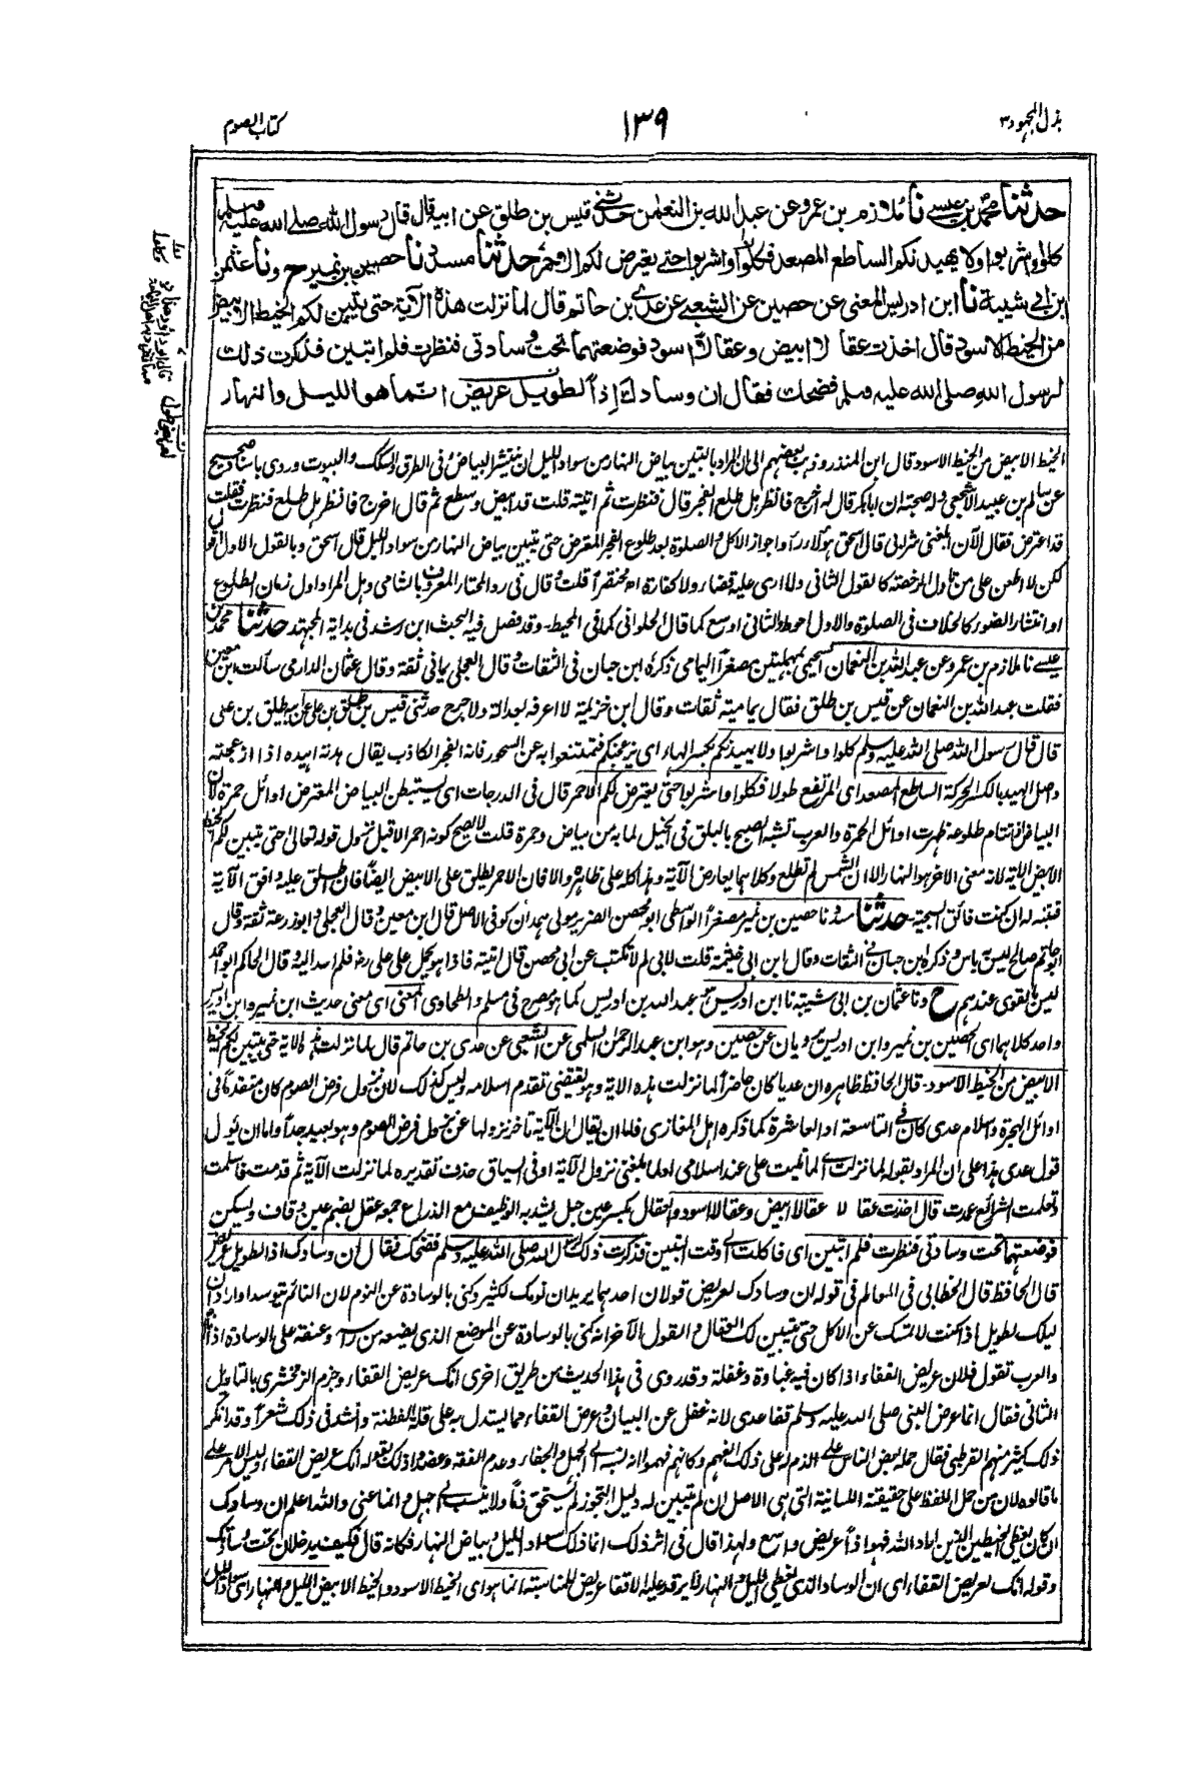 بذل المجهود ٣
١٣٩
كتاب الصوم
حدثنا محمد بن عيسى نا ملازم بن عمرو عن عبد الله بن النعمان حدثني قيس بن طلق عن ابيه قال قال رسول الله صلى الله عليه وسلم
كلوا واشربوا ولا يهيدنكم الساطع المصعد فكلوا واشربوا حتى يعترض لكم الاحمر حدثنا مسدد نا حصين بن نمير ح ونا عثمن
بن ابي شيبة نا ابن ادريس المعنى عن حصين عن الشعبي عن عدي بن حاتم قال لما نزلت هذه الآية حتى يتبين لكم الخيط الابيض
من الخيط الاسود قال اخذت عقالا ابيض وعقالا اسود فوضعتهما تحت وسادتي فنظرت فلم اتبين فذكرت ذلك
لرسول الله صلى الله عليه وسلم فضحك فقال ان وسادك إذاً لطويل عريض انما هو الليل والنهار
الخيط الابيض من الخيط الاسود قال ابن المنذر وذهب بعضهم الى ان المراد بالتبين بياض النهار من سواد الليل ان ينتشر البياض في الطرق والسكك والبيوت وروى باسناد صحيح
عن سالم بن عبيد الاشجعي وله صحبة ان ابا بكر قال له اخرج فانظر هل طلع الفجر قال فنظرت ثم اتيته قلت قد ابيض وسطع ثم قال اخرج فانظر هل طلع فنظرت فقلت
قد اعترض فقال الآن ابلغني شرابي قال اسحق هؤلاء رأوا جواز الاكل والصلوة بعد طلوع الفجر المعترض حتى يتبين بياض النهار من سواد الليل قال اسحق وبالقول الاول اقول
لكن لا اطعن على من تأول الرخصة كالقول الثاني ولا ارى عليه قضاء ولا كفارة اه مختصرا قلت وقال في رد المحتار المعروف بالشامي وهل المراد اول زمان الطلوع
او انتشار الضوء كالخلاف في الصلوة والاول احوط والثاني اوسع كما قال الحلواني كما في المحيط - وقد فصل فيه البحث ابن رشد في بداية المجتهد حدثنا محمد بن
عيسى نا ملازم بن عمرو عن عبد الله بن النعمان السحيمي بمهملتين مصغرا اليمامي ذكره ابن حبان في الثقات وقال العجلي يماني ثقة وقال عثمان الدارمي سألت ابن معين
فقلت عبد الله بن النعمان عن قيس بن طلق فقال يمامية ثقات وقال ابن خزيمة لا اعرفه بعدالة ولا جرح حدثني قيس بن طلق بن علي عن ابيه طلق بن علي
قال قال رسول الله صلى الله عليه وسلم كلوا واشربوا ولا يهيدنكم بكسر الهاء اي يزعجنكم فتمتنعوا به عن السحور فانه الفجر الكاذب يقال هدته اهيده اذا ازعجته
واصل الهيد بالكسر الحركة الساطع المصعد اي المرتفع طولا فكلوا واشربوا حتى يعترض لكم الاحمر قال في الدرجات اي يستبطن البياض المعترض اوائل حمرة لان
البياض اذا تتام طلوعه ظهرت اوائل الحمرة والعرب تشبه الصبح بالبلق في الخيل لما به من بياض وحمرة قلت لا يصح كونه احمر الا قبل نزول قوله تعالى حتى يتبين لكم الخيط
الابيض الآية لانه معنى الآخر هو النهار الا ان الشمس لم تطلع وكلاهما يعارض الآية وهذا كله على ظاهره والا فان الاحمر يطلق على الابيض ايضا فان اطلق عليه وافق الآية
فتنبه له ان كنت فائق السجية - حدثنا مسدد نا حصين بن نمير مصغرا الواسطي ابو محصن الضرير مولى همدان كوفي الاصل قال ابن معين وقال العجلي وابو زرعة ثقة وقال
ابو حاتم صالح ليس به باس وذكره ابن حبان في الثقات وقال ابن ابي خيثمة قلت لابي لم لا تكتب عن ابي محصن قال اتيته فاذا هو يحمل على علي رض فلم اعد اليه وقال الحاكم ابو احمد
ليس بالقوى عندهم ح ونا عثمان بن ابي شيبة نا ابن ادريس عبد الله بن ادريس كما هو مصرح في مسلم والطحاوي المعنى اي معنى حديث ابن نمير وابن ادريس
واحد كلاهما اي الحصين بن نمير وابن ادريس يرويان عن حصين وهو ابن عبد الرحمن السلمي عن الشعبي عن عدي بن حاتم قال لما نزلت هذه الآية حتى يتبين لكم الخيط
الابيض من الخيط الاسود - قال الحافظ ظاهره ان عديا كان حاضرا لما نزلت هذه الآية وهو يقتضي تقدم اسلامه وليس كذلك لان نزول فرض الصوم كان متقدما في
اوائل الهجرة واسلام عدي كان في التاسعة او العاشرة كما ذكره اهل المغازي فاما ان يقال ان الآية تاخر نزولها عن نزول فرض الصوم وهو بعيد جدا واما ان يؤول
قول عدي هذا على ان المراد بقوله لما نزلت اي لما تليت علي عند اسلامي او لما بلغني نزول الآية او في السياق حذف تقديره لما نزلت الآية ثم قدمت فاسلمت
وتعلمت الشرائع عمدت قال اخذت عقالا عقالا ابيض وعقالا اسود والعقال بكسر عين حبل يشد به الوظيف مع الذراع جمعه عقل بضم عين وقاف وليسكن
فوضعتهما تحت وسادتي فنظرت فلم اتبين اي فاكلت الى وقت التبين فذكرت ذلك لرسول الله صلى الله عليه وسلم فضحك فقال ان وسادك اذا لطويل عريض
قال الحافظ قال الخطابي في المعالم في قوله ان وسادك لعريض قولان احدهما يريد ان نومك لكثير وكنى بالوسادة عن النوم لان النائم يتوسد او اراد ان
ليلك لطويل اذا كنت لا تمسك عن الاكل حتى يتبين لك العقال والقول الآخر انه كنى بالوسادة عن الموضع الذي يضعه من رأسه وعنقه على الوسادة اذا نام
والعرب تقول فلان عريض القفاء اذا كان فيه غباوة وغفلة وقد روى في هذا الحديث من طريق اخرى انك عريض القفاء وجزم الزمخشري بالتاويل
الثاني فقال انما عرض النبي صلى الله عليه وسلم قفا عدي لانه غفل عن البيان وعرض القفاء مما يستدل به على قلة الفطنة وانشد في ذلك شعرا وقد انكر
ذلك كثير منهم القرطبي فقال حمله بعض الناس على الذم له على ذلك الفهم وكانهم فهموا انه نسبه الى الجهل والجفاء وعدم الفقه وعضدوا ذلك بقوله انك عريض القفاء وليس الامر على
ما قالوه لان من حمل اللفظ على حقيقته اللسانية التي هي الاصل ان لم يتبين له دليل التجوز لم يستحق ذما ولا ينسب الى جهل وانما عنى والله اعلم ان وسادك
ان كان يغطي الخيطين الذين اراد الله فهو اذا عريض واسع ولهذا قال في اثر ذلك انما ذلك سواد الليل وبياض النهار فكانه قال فكيف يدخلان تحت وسادتك
وقوله انك لعريض القفاء اي ان الوساد الذي يغطي الليل والنهار لا يرقد عليه الا قفا عريض للمناسبة انما هو اي الخيط الاسود والخيط الابيض الليل والنهار اي سواد الليل